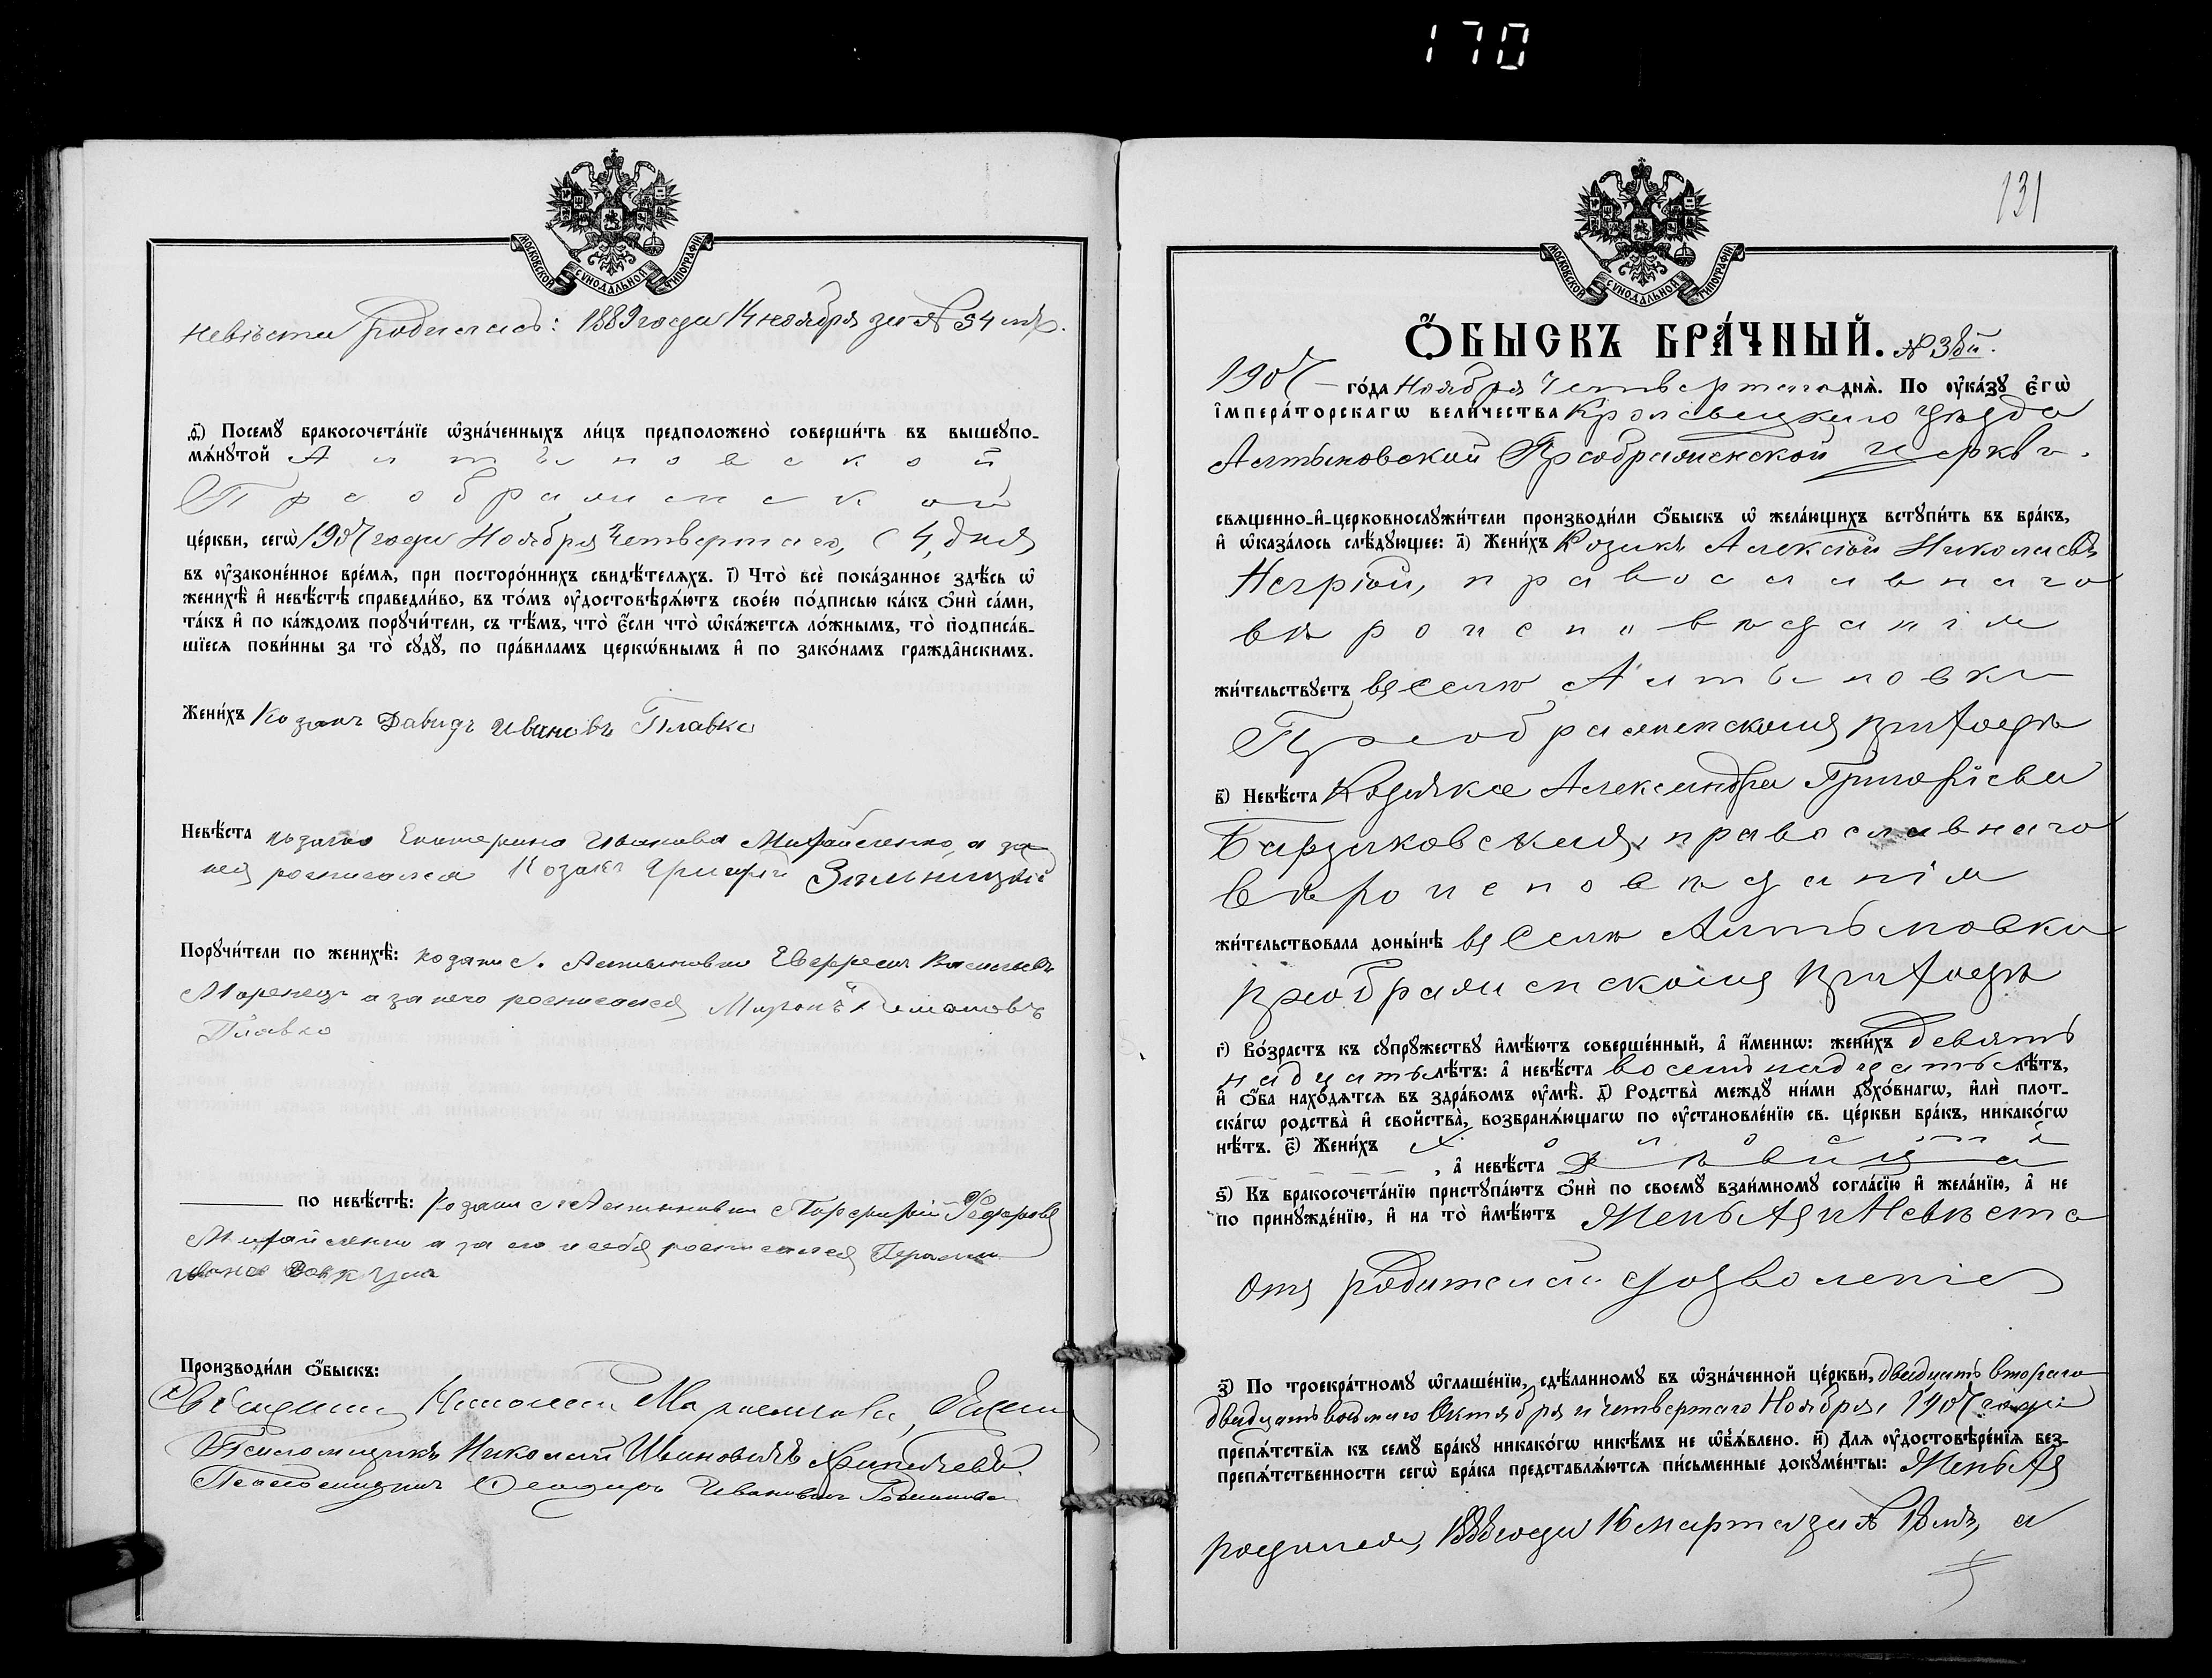 170
МОСКОВСКОЙ СѴНОДАЛЬНОЙ ТИПОГРАФІИ.
невѣста родилась: 1889 года 14 ноября за № 54 мъ.
ѳ҃) Посемꙋ бракосочета́нїе ѡ҆зна́ченныхъ ли́цъ предположено̀ соверши́ть въ вышеꙋпо-
мѧ́нꙋтой Алтыновской
Преображенской
це́ркви, сегѡ̀ 1907 года Ноября Четвертаго, (4, дня
въ ᲂу҆законе́нное вре́мѧ, при посторо́ннихъ свидѣ́телѧхъ. і҃) Что̀ всѐ пока́занное здѣ́сь ѡ҆
женихѣ̀ и҆ невѣ́стѣ справедли́во, въ то́мъ ᲂу҆достовѣрѧ́ютъ свое́ю по́дписью ка́къ ѻ҆нѝ са́ми,
та́къ и҆ по ка́ждомъ порꙋчи́тели, съ тѣ́мъ, что̀ є҆́сли что̀ ѡ҆ка́жетсѧ ло́жнымъ, то̀ подписа́в-
шїесѧ пови́нны за то̀ сꙋдꙋ̀, по пра́виламъ церкѡ́внымъ и҆ по зако́намъ гражда̑нскимъ.
Жени́хъ Козакъ Давидъ Ивановъ Плавко
Невѣ́ста козачка Екатерина Иванова Михайленко, а за
нея росписался Козакъ Григорій
Порꙋчи́тели по женихѣ̀: козаки с. Алтыновки
а за него росписался Миронъ
Плавко
по невѣ́стѣ: Козаки с. Алтыновки Порфирій Федоровъ
Михайленко а за его и себя росписался
Производи́ли ѻ҆́быскъ:
Священникъ Николай
Псаломщикъ Николай Ивановичъ
Псаломщикъ Иванович
131
МОСКОВСКОЙ СѴНОДАЛЬНОЙ ТИПОГРАФІИ.
Ѻ҆́БЫСКЪ БРА́ЧНЫЙ. № 38й.
1907 го́да Ноября Четвертаго днѧ̀. По ᲂу҆ка́зꙋ є҆гѡ̀
і҆мпера́торскагѡ вели́чества Кролевецкаго уѣзда
Алтыновской Преображенской церкви.
свѧщенно-и҆-церковнослꙋжи́тели производи́ли ѻ҆́быскъ ѡ҆ жела́ющихъ встꙋпи́ть въ бра́къ,
и҆ ѡ҆каза́лось слѣ́дꙋющее: а҃) Жени́хъ Козакъ Алексѣй Николаевъ
Негрій, православнаго
вѣроисповѣданія
жи́тельствꙋетъ въ селѣ Алтыновкѣ
Преображенскомъ приходѣ
в҃) Невѣ́ста Козачка Александра Григоріева
Барзиковская, православнаго
вѣроисповѣданія
жи́тельствовала доны́нѣ въ селѣ Алтыновкѣ
преображенскомъ приходѣ
г҃) Во́зрастъ къ сꙋпрꙋ́жествꙋ и҆мѣ́ютъ соверше́нный, а҆ и҆́меннѡ: жени́хъ девять
надцать лѣ́тъ: а҆ невѣ́ста восемнадцать лѣ́тъ,
и҆ ѻ҆́ба нахо́дѧтсѧ въ здра́вомъ ᲂу҆мѣ̀. д҃) Родства̀ междꙋ̀ ни́ми дꙋхо́внагѡ, и҆лѝ плот-
ска́гѡ родства̀ и҆ сво́йства, возбранѧ́ющагѡ по ᲂу҆становле́нїю св. це́ркви бра́къ, никако́гѡ
нѣ́тъ. є҃) Жени́хъ холостъ
, а҆ невѣ́ста дѣвица
ѕ҃) Къ бракосочета́нїю пристꙋпа́ютъ ѻ҆нѝ по своемꙋ̀ взаи́мномꙋ согла́сїю и҆ жела́нїю, а҆ не
по принꙋжде́нїю, и҆ на то̀ и҆мѣ́ютъ Женихъ и Невѣста
отъ родителей дозволеніе
з҃) По троекра́тномꙋ ѡ҆глаше́нїю, сдѣ́ланномꙋ въ ѡ҆зна́ченной це́ркви, двадцать втораго
двадцать восьмаго Октября и четвертаго Ноября, 1907 года
препѧ́тствїѧ къ семꙋ̀ бра́кꙋ никако́гѡ никѣ́мъ не ѡ҆б̾ѧ́влено. и҃) Длѧ ᲂу҆достовѣре́нїѧ без-
препѧ́тственности сегѡ̀ бра́ка представлѧ́ютсѧ пи́сьменные докꙋме́нты: Женихъ
родился, 1888 года 16 марта за № 18 мъ, а